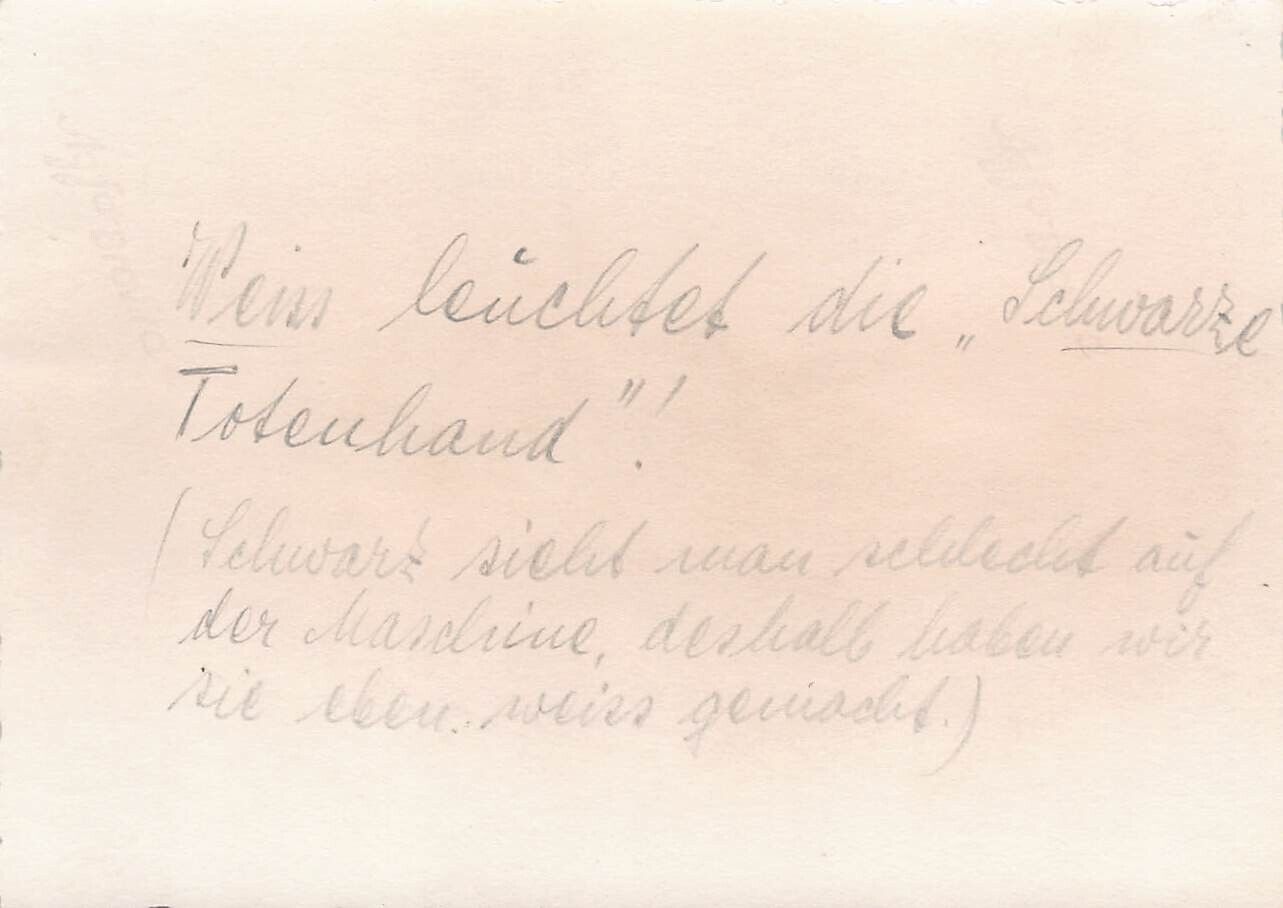 Weiss leuchtet die „Schwarze
Totenhand"!
(Schwarz sieht man schlecht auf
der Maschine, deshalb haben wir
sie eben weiss gemacht.)